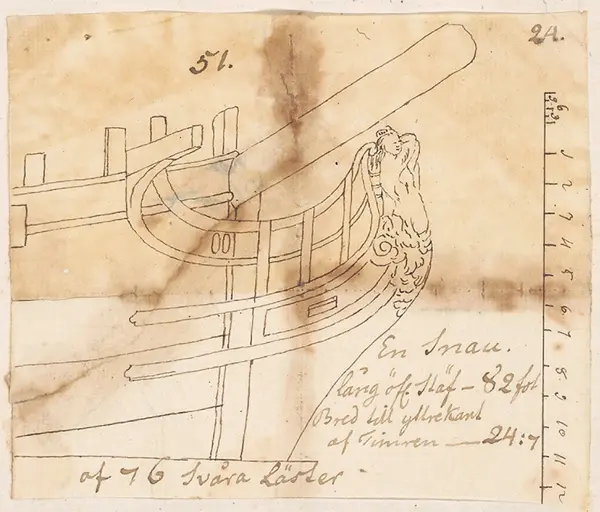 51.
24.
En Snau.
lång öfr. Stäf – 82 fot
Bred till yttrekant
af Timren — 24:7
af 76 Svåra Läster
6
3
1
2
3
4
5
6
7
8
9
10
11
12